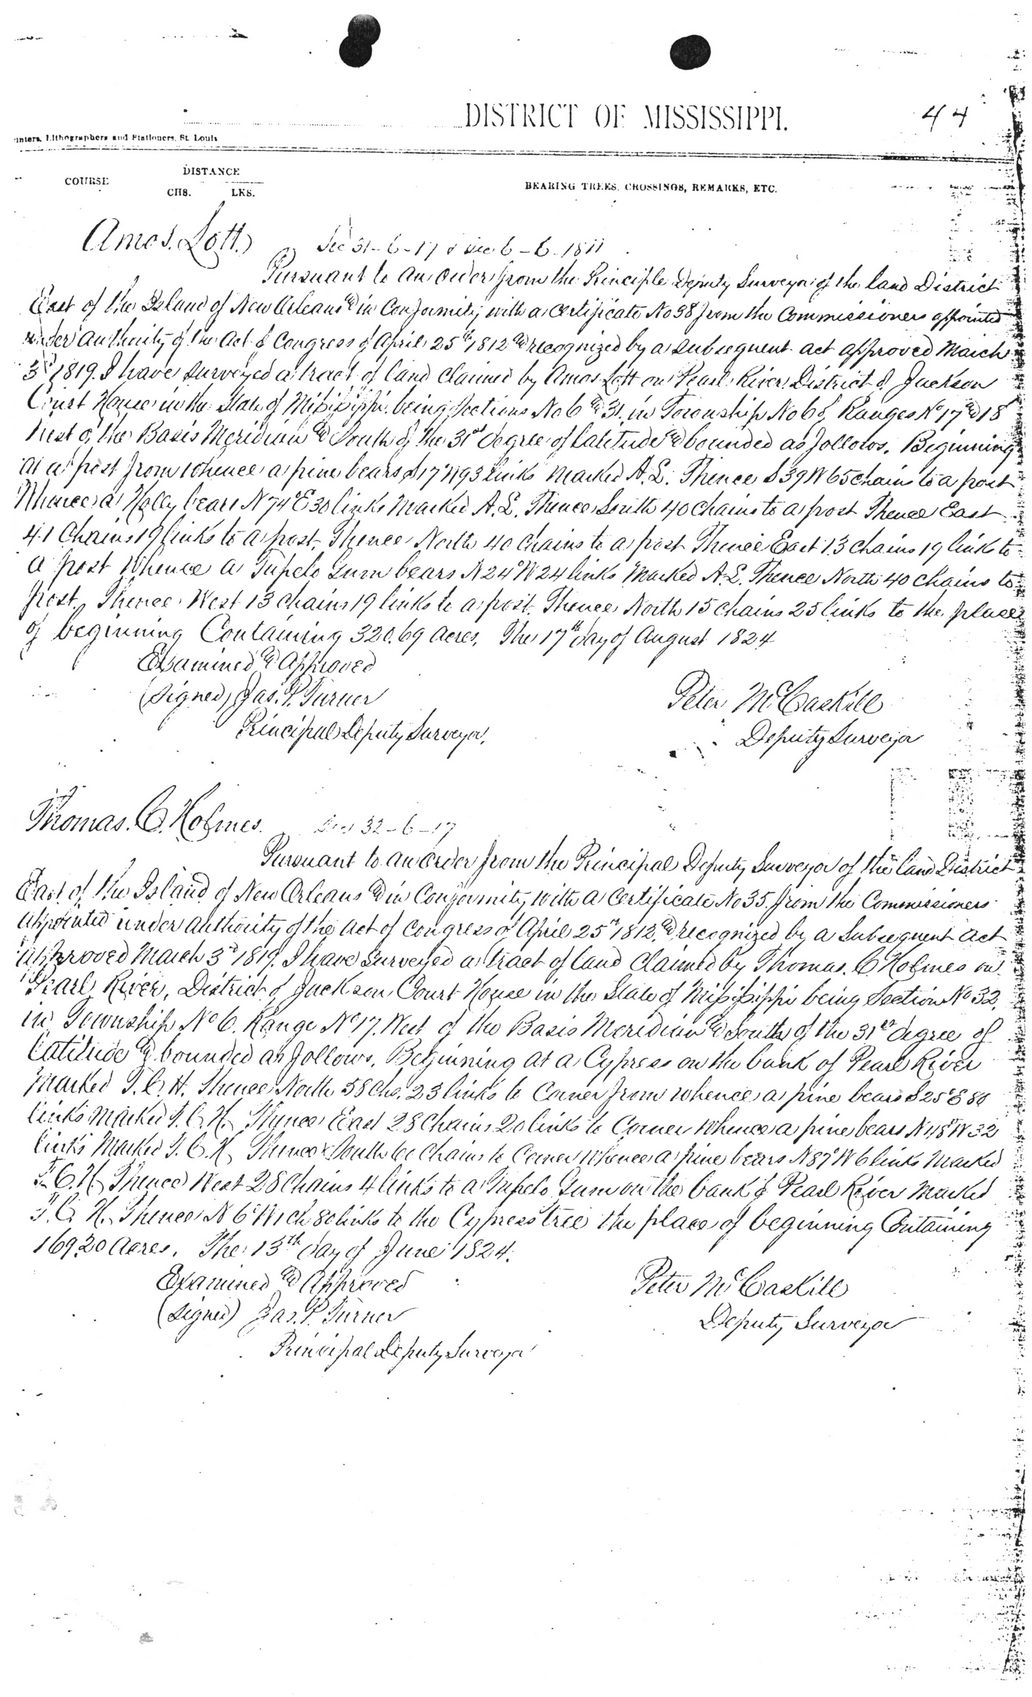 DISTRICT OF MISSISSIPPI.
44
Lithographers and Stationers, St. Louis
COURSE
DISTANCE
CHS. LKS.
BEARING TREES, CROSSINGS, REMARKS, ETC.
Amos. Lott. Sec 31-6-17 & Sec 6-6-18
Pursuant to an order from the Principle Deputy Surveyor of the land District
East of the Island of New Orleans & in Conformity with a certificate No 38 from the Commissioners appointed
under authority of the Act of Congress of April 25th 1812 & recognized by a subsequent act approved March
3rd 1819. I have surveyed a tract of land claimed by Amos Lott on Pearl River, District of Jackson
Court House in the State of Mississippi being Sections No 6 & 31. in Township No 6 of Ranges No 17 & 18
West of the Basis Meridian & South of the 31st degree of latitude & bounded as follows. Beginning
at a post from whence a pine bears S 17 W 93 links Marked A. L. Thence S 39 W 65 chains to a post
Whence a Holly bears N 74 E 30 links Marked A. L. Thence South 40 chains to a post Thence East
41 Chains 19 links to a post, Thence North 40 chains to a post Thence East 13 chains 19 links to
a post Whence a Tupelo Gum bears N 24° W 24 links Marked A. L. Thence North 40 chains to
post, Thence West 13 chains 19 links to a post. Thence North 15 chains 25 links to the place
of beginning Containing 320.69 acres. The 17th day of August 1824
Examined & Approved
(signed) Jas. P. Turner
Principal Deputy Surveyor.
Peter McCaskill
Deputy Surveyor
Thomas. C. Holmes. Sec 32-6-17
Pursuant to an order from the Principal Deputy Surveyor of the land District
East of the Island of New Orleans & in Conformity with a certificate No 35 from the Commissioners
appointed under authority of the act of congress of April 25th 1812, & recognized by a Subsequent act
approved March 3rd 1819. I have surveyed a tract of land claimed by Thomas. C Holmes on
Pearl River, District of Jackson Court House in the State of Mississippi being Section No 32,
in Township No 6. Range No 17. West of the Basis Meridian & South of the 31st degree of
Latitude & bounded as follows. Beginning at a Cypress on the bank of Pearl River
Marked T. C. H. Thence North 58 chs. 23 links to Corner from whence a pine bears S 25° E 80
links Marked T. C. H. Thence East 28 Chains 20 links to Corner Whence a pine bears N 48° W 32
links Marked T. C. H. Thence South 60 Chains to Corner Whence a pine bears N 87° W 6 links Marked
T. C. H. Thence West 28 Chains 4 links to a Tupelo Gum on the bank of Pearl River Marked
T. C. H. Thence N 6° W 1 ch 80 links to the Cypress tree the place of beginning Containing
169.20 acres. The 13th day of June 1824.
Examined & Approved
(signed) Jas. P. Turner
Principal Deputy Surveyor
Peter McCaskill
Deputy Surveyor